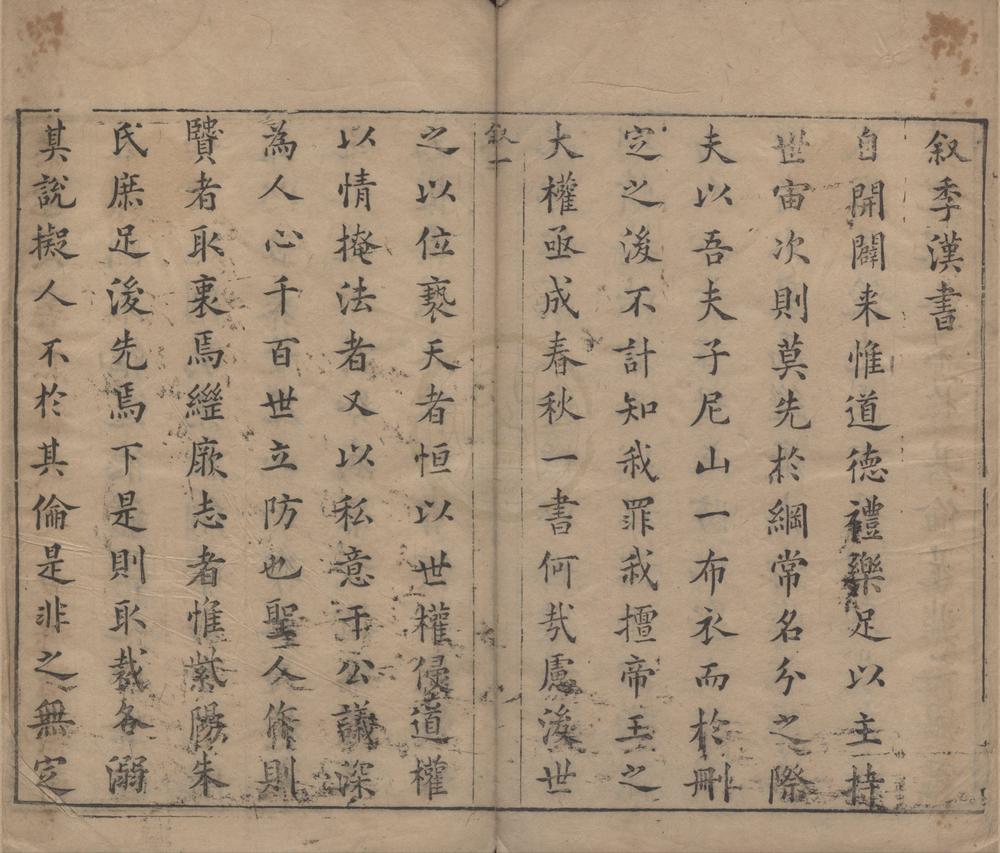 叙季漢書
自開闢来惟道德禮樂足以主持
世宙次則莫先於綱常名分之際
夫以吾夫子尼山一布衣而於刪
定之後不計知我罪我擅帝王之
大權亟成春秋一書何哉慮後世
叙一
之以位褻天者恒以世權侵道權
以情掩法者又以私意干公議深
為人心千百世立防也聖人脩則
賢者取裏焉繼厥志者惟紫陽朱
氏庶足後先焉下是則取裁各溺
其說擬人不於其倫是非之無定